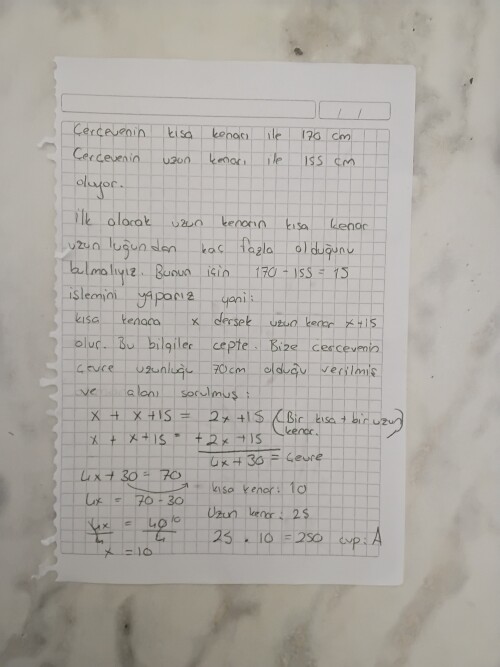 / /
Çerçevenin kısa kenarı ile 170 cm
Çerçevenin uzun kenarı ile 155 cm
oluyor.
İlk olarak uzun kenarın kısa kenar
uzunluğundan kaç fazla olduğunu
bulmalıyız. Bunun için 170 - 155 = 15
işlemini yaparız yani:
kısa kenara x dersek uzun kenar x+15
olur. Bu bilgiler cepte. Bize çerçevenin
çevre uzunluğu 70cm olduğu verilmiş
ve alanı sorulmuş:
x + x+15 = 2x+15 (Bir kısa + bir uzun kenar.)
x + x+15 = + 2x+15
4x+30 = Çevre
4x+30 = 70
kısa kenar: 10
4x = 70-30
Uzun kenar: 25
4x/4 = 40/4 10
25 . 10 = 250 cvp: A
x = 10